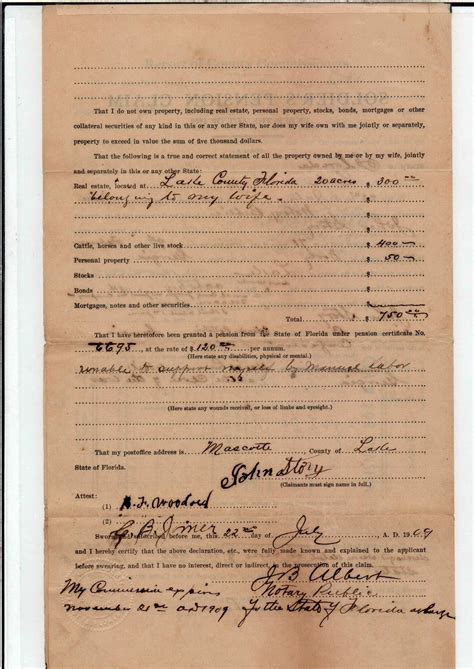 That I do not own property, including real estate, personal property, stocks, bonds, mortgages or other
collateral securities of any kind in this or any other State, nor does my wife own with me jointly or separately,
property to exceed in value the sum of five thousand dollars.
That the following is a true and correct statement of all the property owned by me or by my wife, jointly
and separately in this or any other State:
Real estate, located at Lake County, Florida 20 acres $ 300 00
belonging to my wife.
Cattle, horses and other live stock $ 400 00
Personal property $ 50 00
Stocks $
Bonds $
Mortgages, notes and other securities $
Total $ 750 00
That I have heretofore been granted a pension from the State of Florida under pension certificate No.
6695, at the rate of $ 120 00 per annum.
(Here state any disabilities, physical or mental.)
unable to support myself by manual labor
(Here state any wounds received, or loss of limbs and eyesight.)
That my postoffice address is Mascotte County of Lake
State of Florida.
John Story
(Claimants must sign name in full.)
Attest:
(1)
(2)
Sworn and subscribed before me, this 22nd day of July A. D. 1909
and I hereby certify that the above declaration, etc., were fully made known and explained to the applicant
before swearing, and that I have no interest, direct or indirect, in the prosecution of this claim.
J B Albert
My Commission expires Notary Public
November 21st A D 1909 for the State of Florida at large